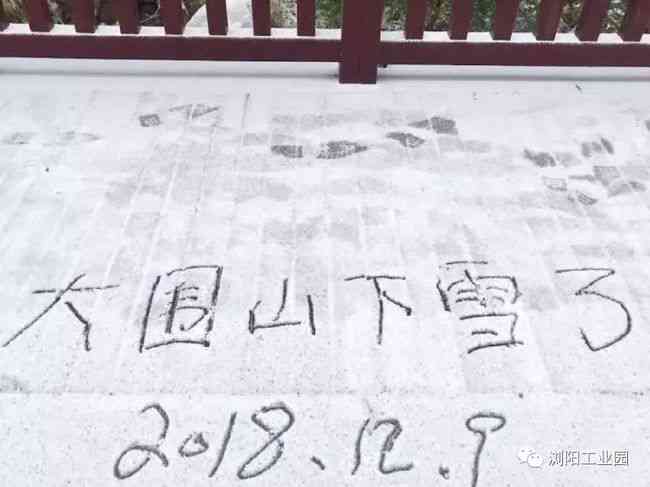 大围山下雪了
2018.12.9
浏阳工业园